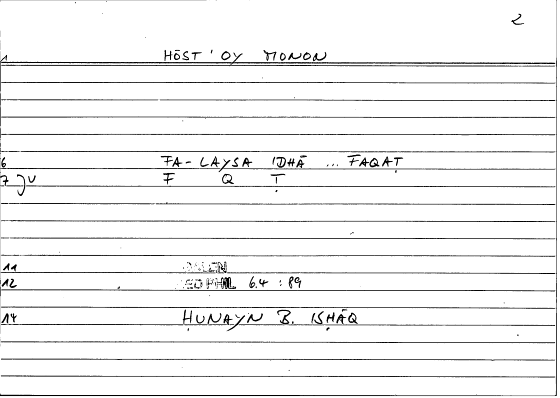 2
1 HŌST' OY MONON
6 FA-LAYSA IDHĀ ... FAQAṬ
7 JV F Q Ṭ
11 GALEN
12 MED PHIL 6.4 : 89
14 ḤUNAYN B. ISḤĀQ